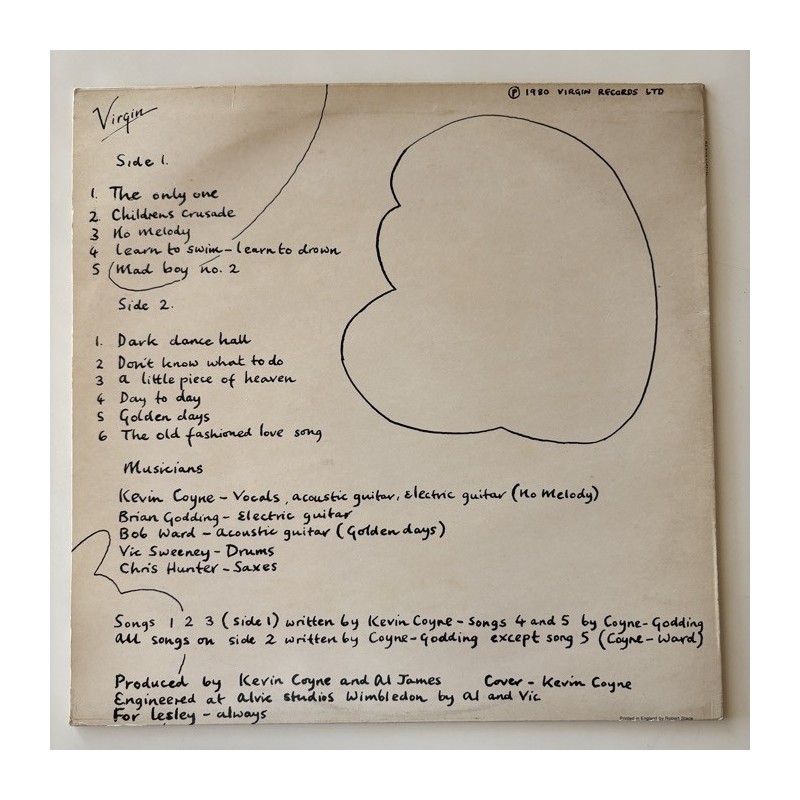 Virgin
℗ 1980 VIRGIN RECORDS LTD
Side 1.
1. The only one
2. Childrens crusade
3 No melody
4 Learn to swim - learn to drown
5 Mad boy no. 2
Side 2.
1. Dark dance hall
2 Don't know what to do
3 a little piece of heaven
4 Day to day
5 Golden days
6 The old fashioned love song
Musicians
Kevin Coyne - Vocals, acoustic guitar, Electric guitar (No Melody)
Brian Godding - Electric guitar
Bob Ward - acoustic guitar (Golden days)
Vic Sweeney - Drums
Chris Hunter - Saxes
Songs 1 2 3 (Side 1) written by Kevin Coyne - Songs 4 and 5 by Coyne-Godding
All songs on side 2 written by Coyne-Godding except song 5 (Coyne-Ward)
Produced by Kevin Coyne and Al James Cover - Kevin Coyne
Engineered at Alvic studios Wimbledon by Al and Vic
For Lesley - always
Printed in England by Robert Stace